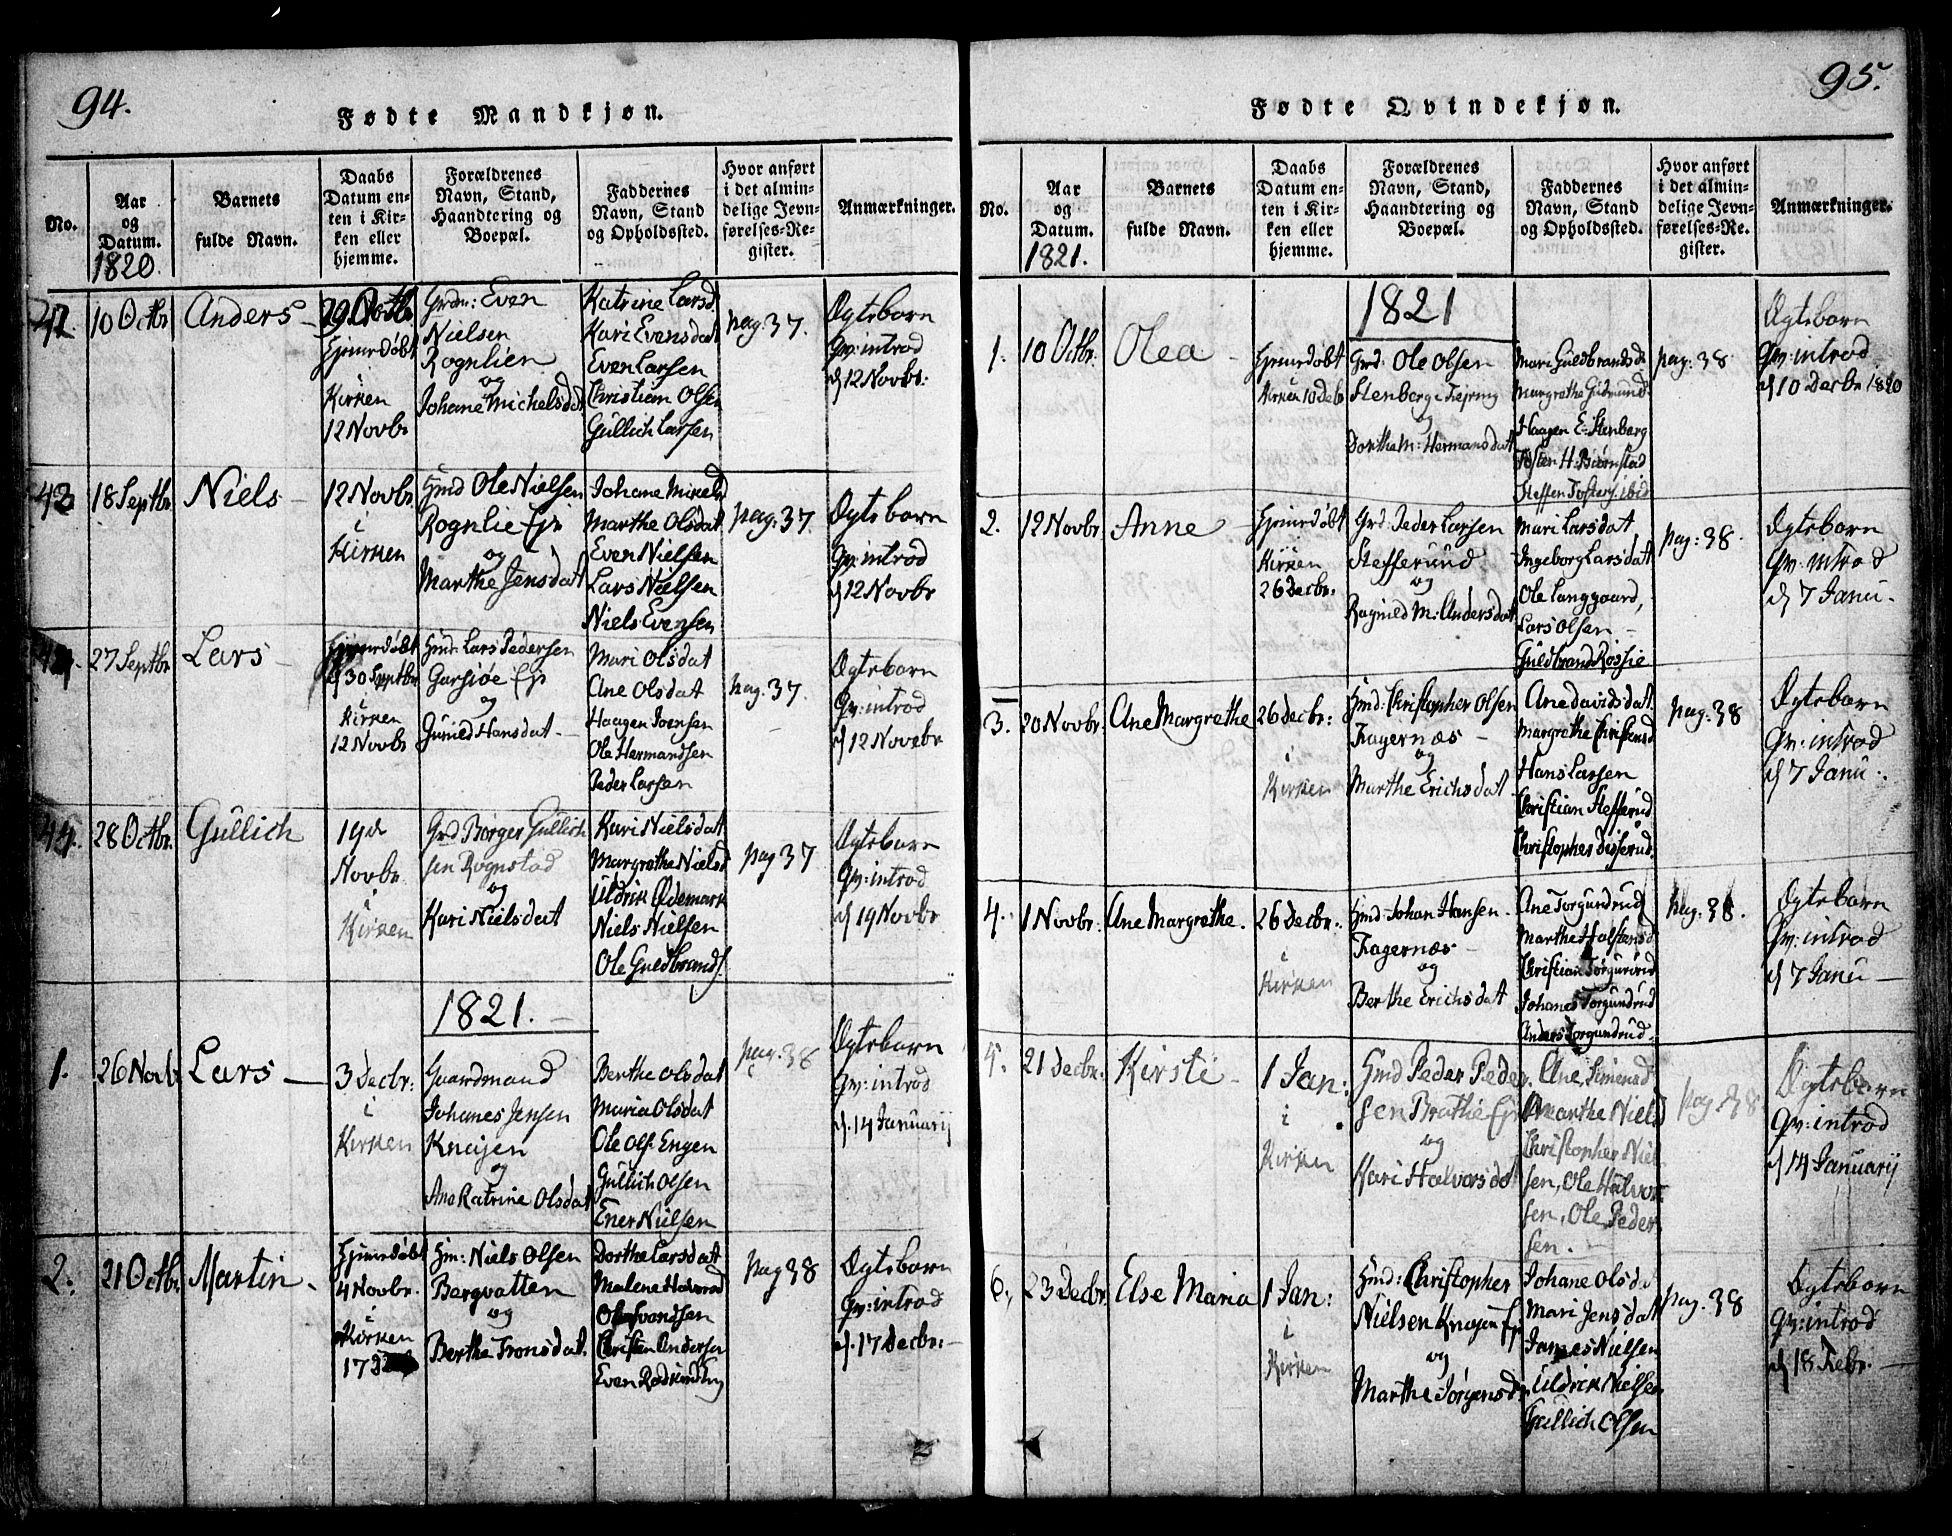 94.
Fødte Mandkjøn.
No.
Aar
og
Datum.
1820.
Barnets
fulde Navn.
Daabs
Datum en-
ten i Kir-
ken eller
hjemme.
Forældrenes
Navn, Stand,
Haandtering og
Boepæl.
Faddernes
Navn, Stand
og Opholdssted.
Hvor anført
i det almin-
delige Jevn-
førelses-Re-
gister.
Anmærkninger.
10 Octbr
Anders
Hjemedøbt
i
Kirken
12 Novbr
Grdm: Even
Nielsen
Rognlien
og
Johane Michelsdat
Katrine Larsd
Kari Evensdat
Even Larsen
Christian Olsen
Gullich Larsen
pag. 37.
Ægteborn
Qv: introd
d 12 Novbr:
43
18 Septbr
Niels
12 Novbr
i
Kirken
Hmd Ole Nielsen
Rognlie Ejr
og
Marthe Jensdat
Johane Mikelsd
Marthe Olsdat
Even Nielsen
Lars Nielsen
Niels Evensen
pag. 37.
Ægteborn
Qv: introd
d 12 Novbr
27 Septbr
Lars
Hjemedøbt
d 30 Septbr
i
Kirken
12 Novbr
Hmd: Lars Pedersen
Garsjøe Ejr
og
Gunild Hansdat
Mari Olsdat
Ane Olsdat
Haagen Joensen
Ole Hermandsen
Peder Larsen
pag. 37.
Ægteborn
Qv: introd
d 12 Novebr
44.
28 Octbr.
Gullich
19d
Novbr
i
Kirken
Grd Børger Gullich
sen Rognstad
og
Kari Nielsdat
Kari Nielsdat
Margrethe Nielsd
Uldrik Ødemark
Niels Nielsen
Ole Guldbrands.
pag 37
Ægteborn
Qv: introd
d 19 Novbr
1821.
1.
26 Novb
Lars
3 Decbr:
i
Kirken
Gaardmand
Johanes Jensen
Knajen
og
Ane Katrine Olsdat
Berthe Olsdat
Maria Olsdat
Ole Ols. Engen
Gullich Olsen
Ener Nielsen
pag. 38
Ægteborn
Qv: introd
d. 14 Januarij
2.
21 Octbr
Martin
Hjemedøbt
4 Novbr.
i
Kirken
Hm: Niels Olsen
Bergvatten
og
Berthe Tronsdat.
Dorthe Larsdat
Malene Halvord
Christen Andersen
pag 38
Ægteborn
Qv: introd
d. 17 Decbr:
95.
Fødte Qvindekjøn.
No.
Aar
og
Datum.
1821.
Barnets
fulde Navn.
Daabs
Datum en-
ten i Kir-
ken eller
hjemme.
Forældrenes
Navn, Stand,
Haandtering og
Boepæl.
Faddernes
Navn, Stand
og Opholdssted.
Hvor anført
i det almin-
delige Jevn-
førelses-Re-
gister.
Anmærkninger.
1821
1.
10 Octbr.
Olea
Hjemedøbt
i
Kirken 10 decb
Grd: Ole Olsen
Stenberg i Fejring
og
Dorthe M: Hermansdat
Mari Guldbrandsd
Margrethe Gudmund
Haagen E: Stenberg
Tosten H. Biørnstad
Steffen Tosters. ibid
pag: 38
Ægteborn
Qv: introd
d 10 Decbr 1820
2.
12 Novbr
Anne
Hjemedøbt
i
Kirken
26 Decbr:
Grd: Peder Larsen
Stefferund
og
Ragnild M: Andersdat
Mari Larsdat
Ingeborg Larsdat
Ole Langgaard,
Lars Olsen
Guldbrand Rossie
pag: 38.
Ægteborn
Qv: introd
d 7 Janu.
3.
20 Novbr.
Ane Margrethe
26 Decbr:
i
Kirken
Hmd: Christopher Olsen
Fagernæs
og
Marthe Erichsdat
Ane Davidsdat
Margrethe Christensd
Hans Larsen
Christian Stefferud
Christopher Disserud.
pag. 38
Ægteborn
Qv: introd
d 7 Janu.
4.
1 Novbr.
Ane Margrethe.
26 Decbr:
i
Kirken
Hmd: Johan Hansen.
Fagernæs
og
Berthe Erichsdat
Ane Torgundrud
Marthe Halstensd
Christian Torgundrud
Johanes Torgundrud
Anders Torgundrud.
pag. 38.
Ægteborn
Qv: introd
d 7 Janu
5.
21 Decbr.
Kirsti
1 Jan:
i
Kirken
Hmd Peder Peder-
sen Brathie Ejr
og
Kari Halvorsdat
Ane Simensd
Marthe Nielsd
Christopher Niel
sen, Ole Halvor
sen, Ole Peder
sen.
pag. 38
Ægteborn
Qv: introd
d 14 Januarij
6.
23 Decbr.
Else Maria
1 Jan:
i
Kirken
Hmd: Christopher
Nielsen Knajen Ejr
og
Marthe Jørgensd
Johane Olsd
Mari Jensdat
James Nielsen
Uldrik Nielsen
Gullich Olsen
pag. 38
Ægteborn
Qv: introd
d 18 Febr.